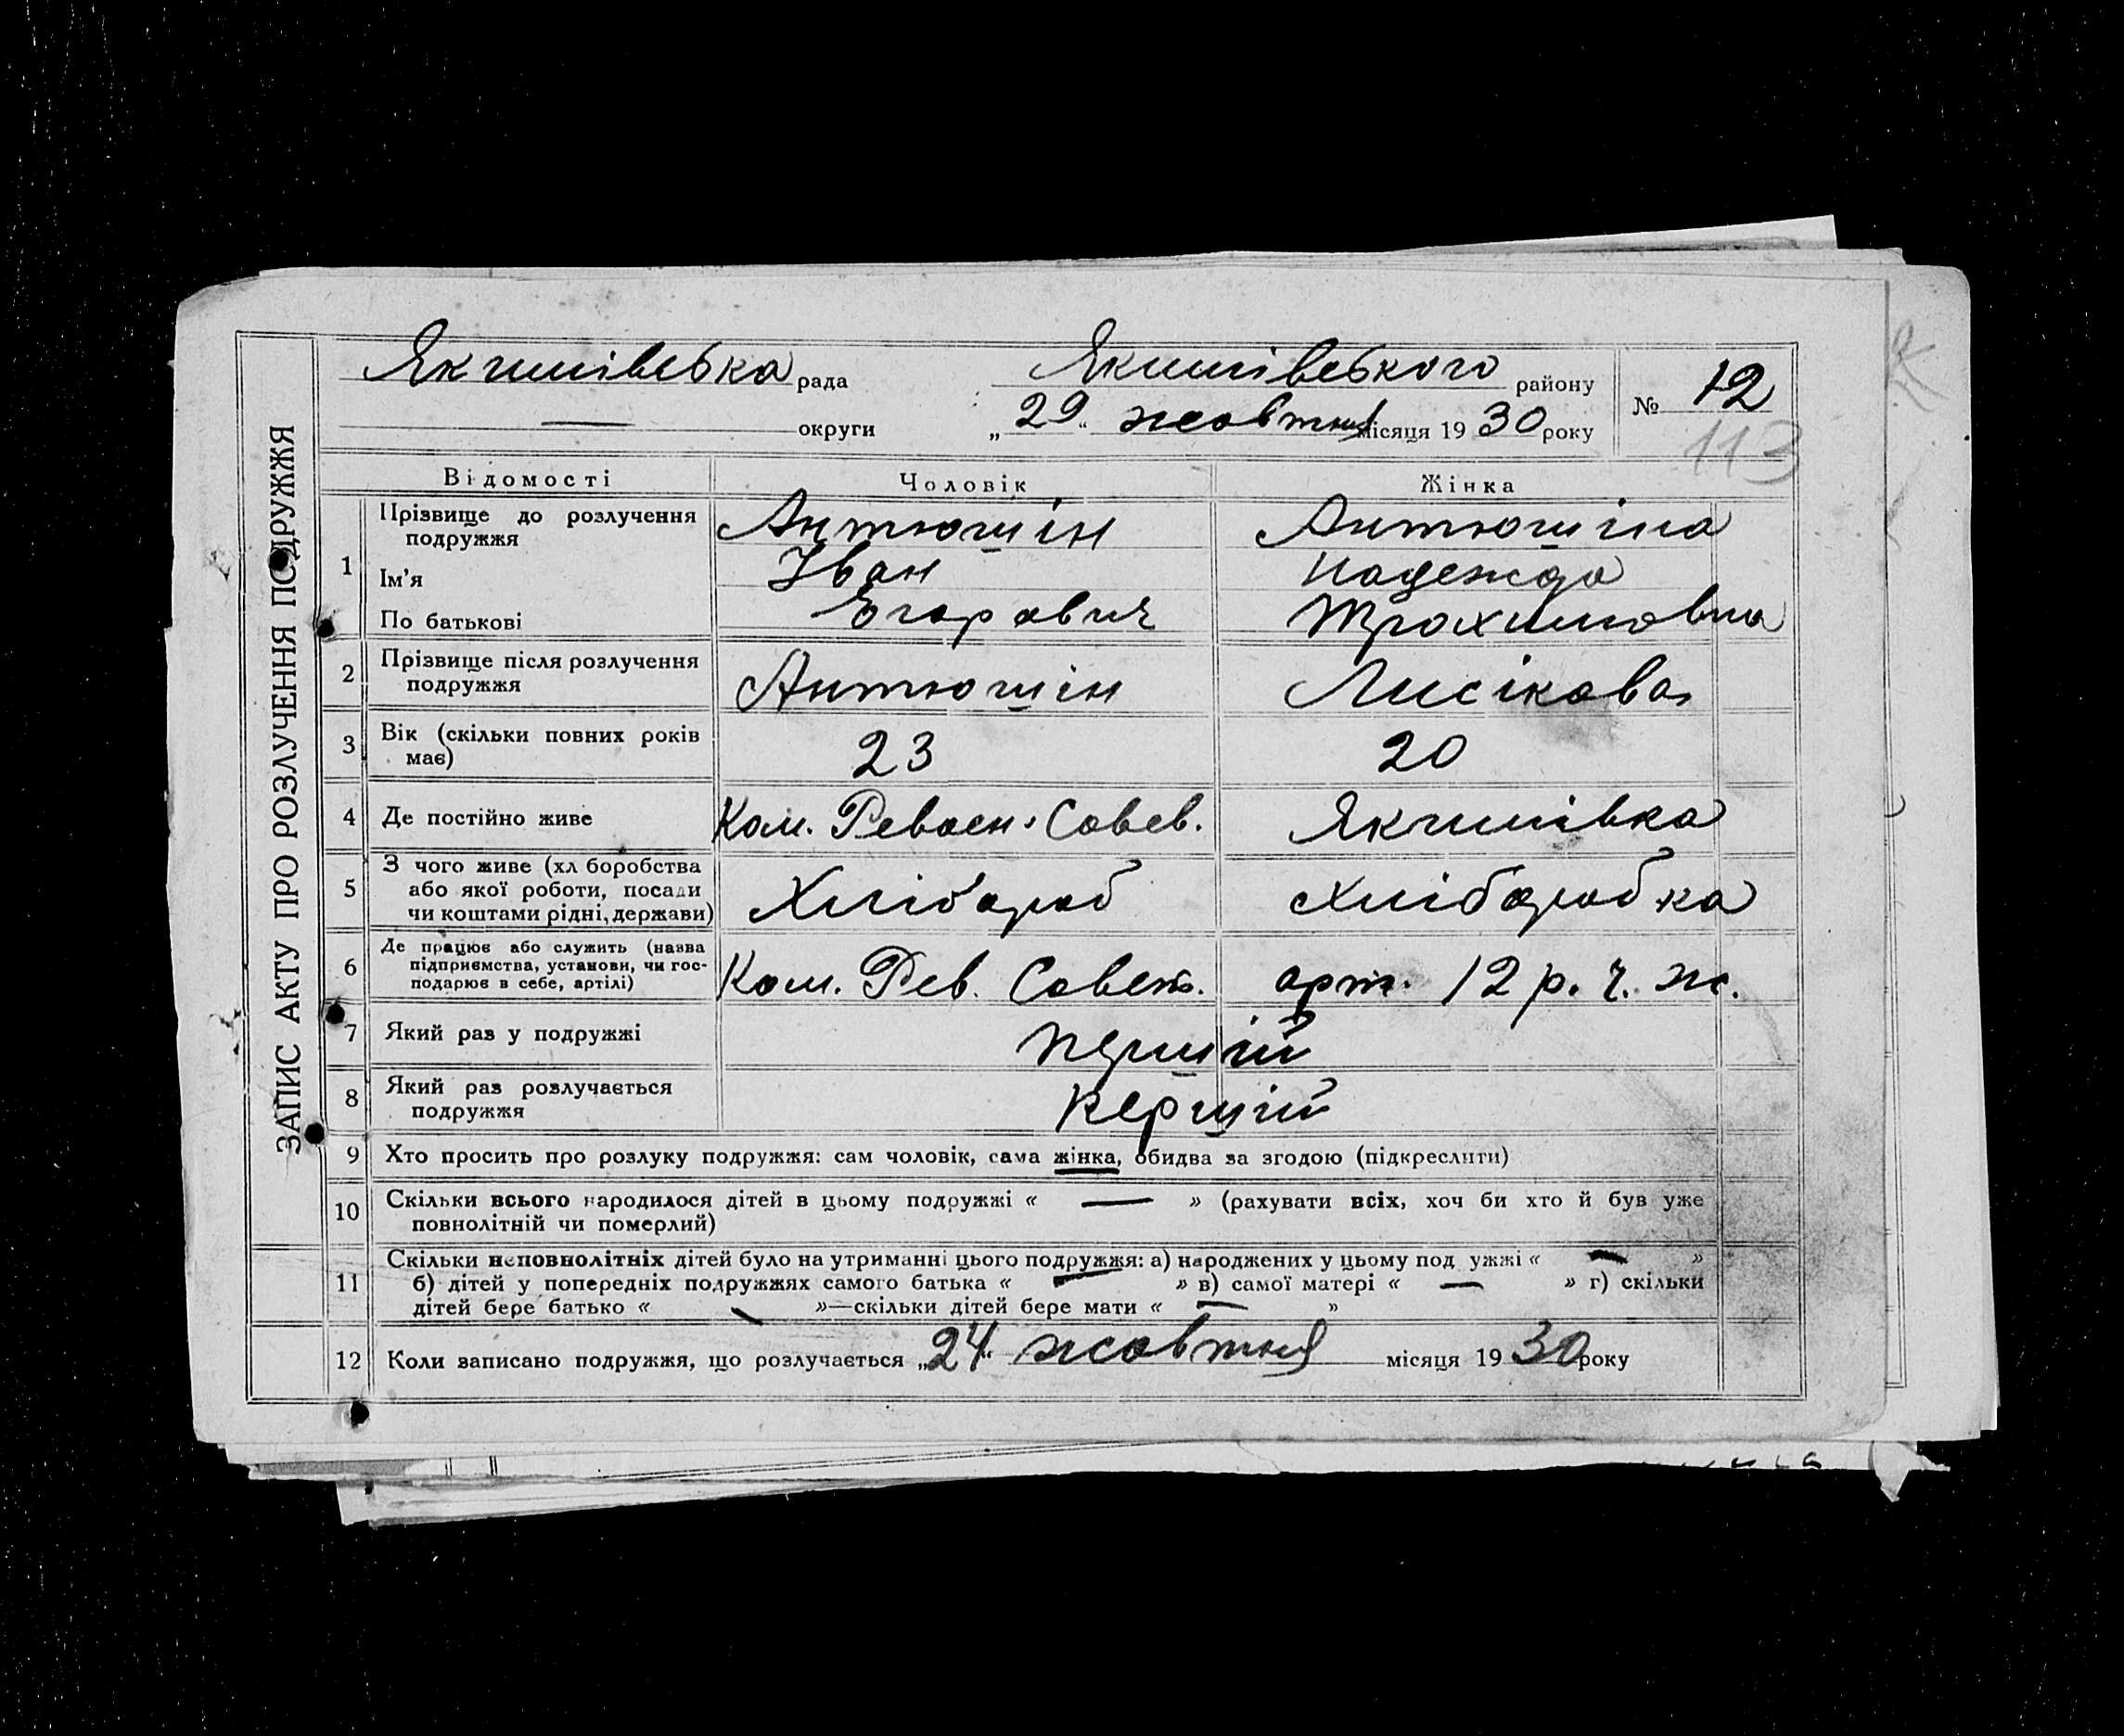 ЗАПИС АКТУ ПРО РОЗЛУЧЕННЯ ПОДРУЖЖЯ
Якимівська рада Якимівського району № 12
— округи „29“ жовтня місяця 1930 року
113
Відомості Чоловік Жінка
1 Прізвище до розлучення подружжя Антюшін Антюшіна
Ім'я Іван Надежда
По батькові Егорович Трохимовна
2 Прізвище після розлучення подружжя Антюшін Лисікова
3 Вік (скільки повних років має) 23 20
4 Де постійно живе Ком. Реввоен. Совев. Якимівка
5 З чого живе (хліборобства або якої роботи, посади чи коштами рідні, держави) Хлібороб Хліборобка
6 Де працює або служить (назва підприємства, установи, чи господарює в себе, артілі) Ком. Рев. Совет. арт. 12 р. ч. ж.
7 Який раз у подружжі перший
8 Який раз розлучається подружжя перший
9 Хто просить про розлуку подружжя: сам чоловік, сама жінка, обидва за згодою (підкреслити)
10 Скільки всього народилося дітей в цьому подружжі « — » (рахувати всіх, хоч би хто й був уже
повнолітній чи померлий)
11 Скільки неповнолітніх дітей було на утриманні цього подружжя: а) народжених у цьому подружжі « — »
б) дітей у попередніх подружжях самого батька « — » в) самої матері « — » г) скільки
дітей бере батько « — »—скільки дітей бере мати « — »
12 Коли записано подружжя, що розлучається „24“ жовтня місяця 1930 року